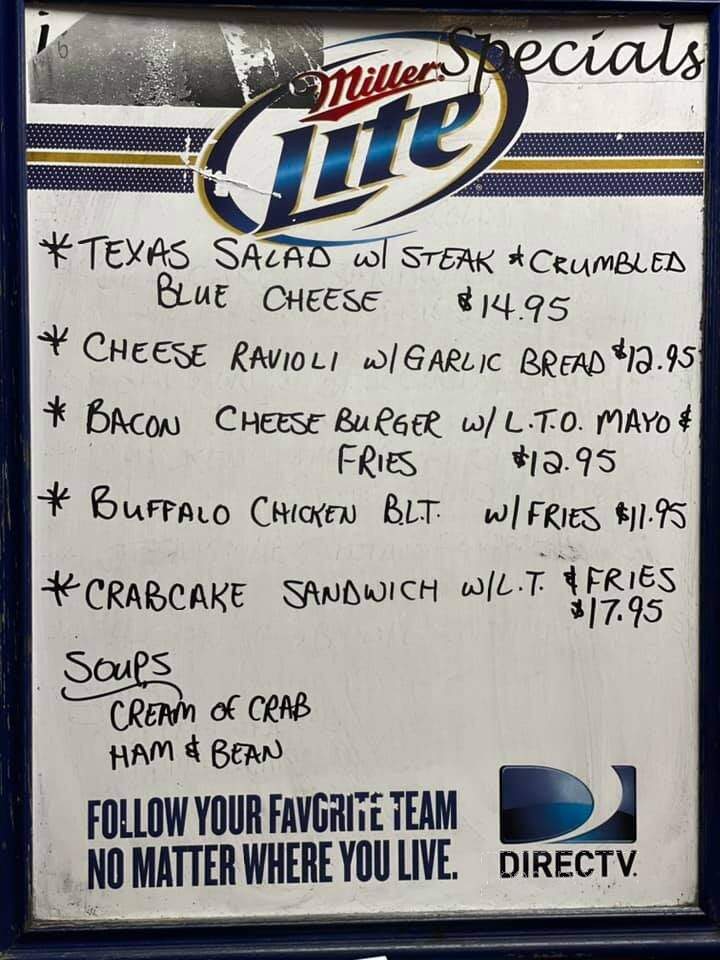 Specials
Miller
Lite
* TEXAS SALAD w/ STEAK & CRUMBLED
BLUE CHEESE $14.95
* CHEESE RAVIOLI w/ GARLIC BREAD $12.95
* BACON CHEESE BURGER w/ L.T.O. MAYO &
FRIES $12.95
* BUFFALO CHICKEN B.L.T. w/ FRIES $11.95
* CRABCAKE SANDWICH w/L.T. & FRIES
$17.95
SOUPS
CREAM OF CRAB
HAM & BEAN
FOLLOW YOUR FAVORITE TEAM
NO MATTER WHERE YOU LIVE.
DIRECTV.